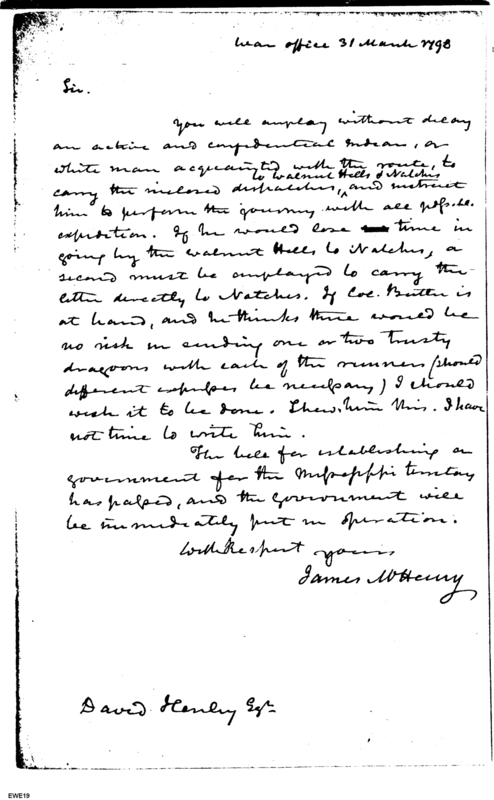 War office 31 March 1798
Sir.
You will employ without delay
an active and confidential Indian, or
white man acquainted with the route, to
to Walnut Hills & Natches
carry the inclosed dispatches, and instruct
him to perform the journey with all possible
expedition. If he would lose time in
going by the Walnut Hills to Natches, a
second must be employed to carry the
letter directly to Natches. If Col. Butler is
at hand, and he thinks there would be
no risk in sending one or two trusty
dragoons with each of the runners (should
different expresses be necessary) I should
wish it to be done. Shew him this. I have
not time to write him.
The bill for establishing a
government for the Mississippi territory
has passed, and the government will
be immediately put in operation.
With Respect yours
James McHenry
David Henley Esqr
EWE19